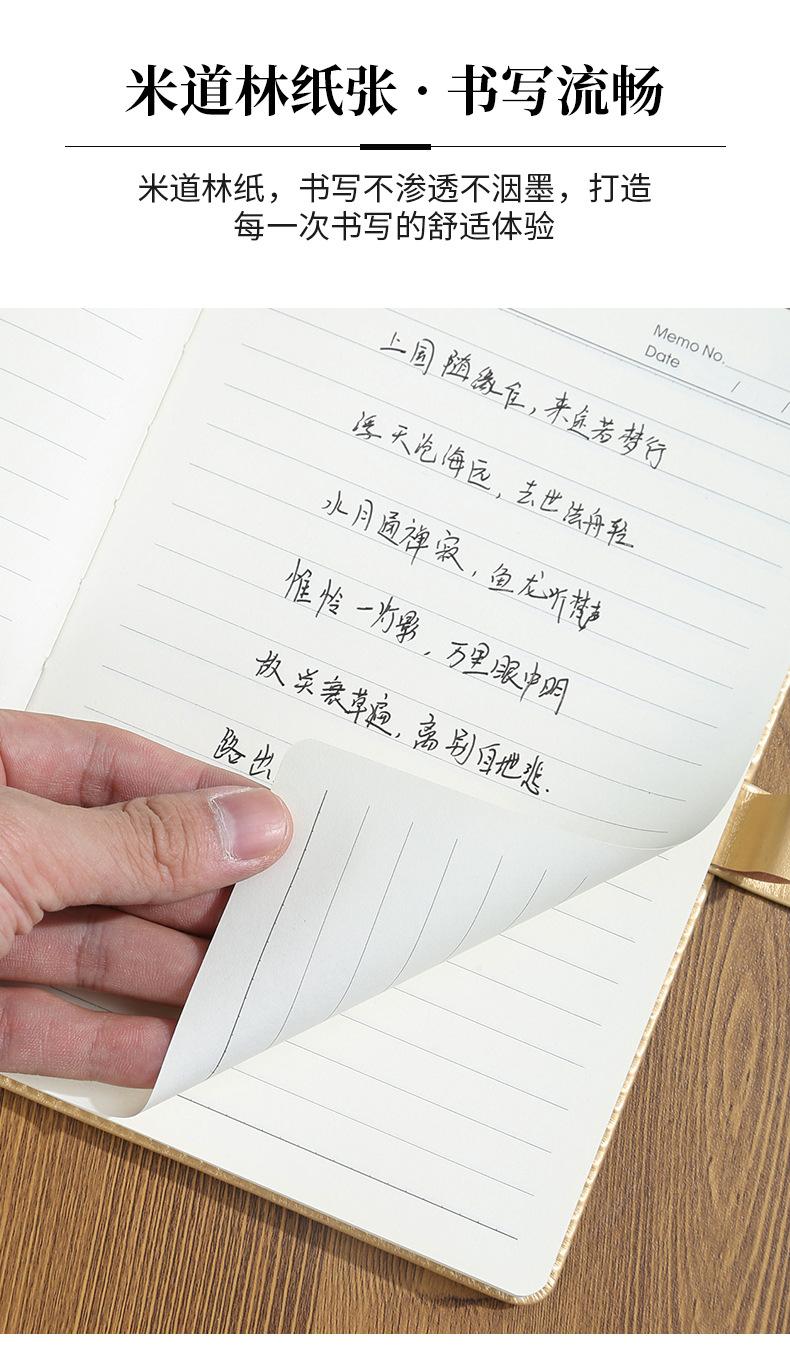 米道林纸张·书写流畅
米道林纸，书写不渗透不洇墨，打造
每一次书写的舒适体验
Memo No.
Date / /
上国随缘住，来途若梦行
浮天沧海远，去世法舟轻
水月通禅寂，鱼龙听梵声
惟怜一灯影，万里眼中明
故关衰草遍，离别自地悲.
路出